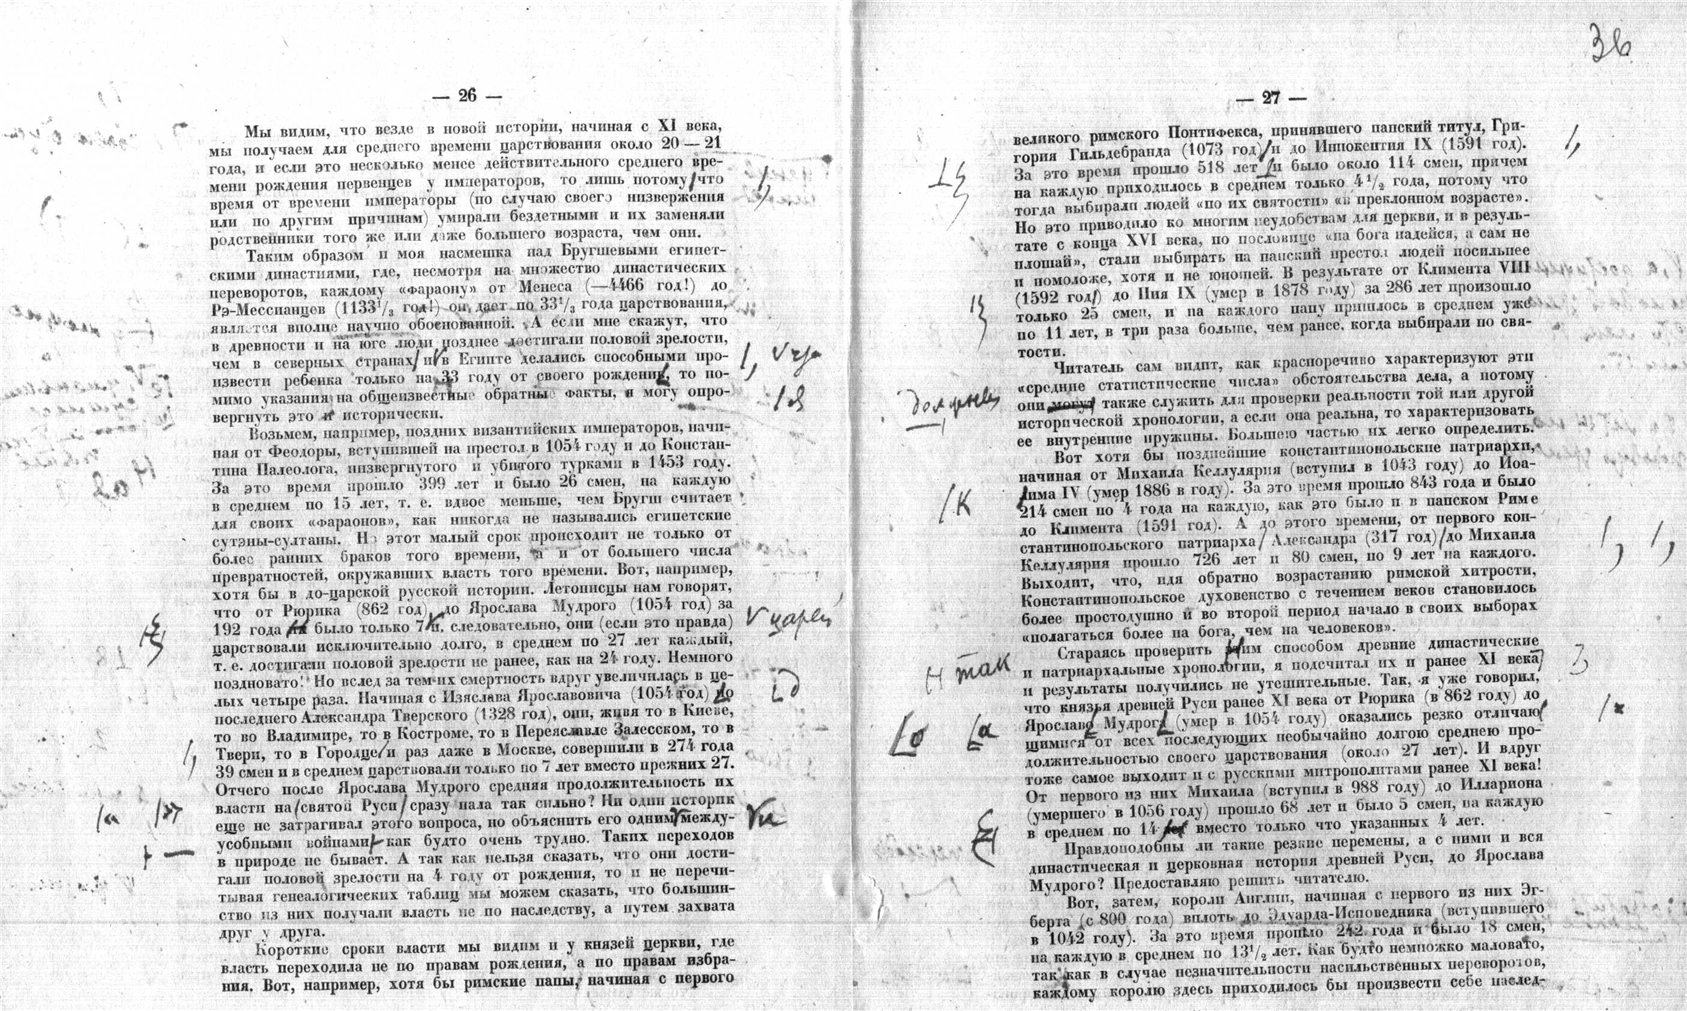 — 26 —
Мы видим, что везде в новой истории, начиная с XI века,
мы получаем для среднего времени царствования около 20 — 21
года, и если это несколько менее действительного среднего вре-
мени рождения первенцев у императоров, то лишь потому/что
время от времени императоры (по случаю своего низвержения
или по другим причинам) умирали бездетными и их заменяли
родственники того же или даже большего возраста, чем они.
Таким образом и моя насмешка над Бругшевыми египет-
скими династиями, где, несмотря на множество династических
переворотов, каждому «фараону» от Менеса (—4466 год!) до
Рэ-Мессианцев (1133 1/3 год!) он дает по 33 1/3 года царствования,
является вполне научно обоснованной. А если мне скажут, что
в древности и на юге люди позднее достигали половой зрелости,
чем в северных странах/и в Египте делались способными про-
извести ребенка только на 33 году от своего рождения, то по-
мимо указания на общеизвестные обратные факты, я могу опро-
вергнуть это и исторически.
Возьмем, например, поздних византийских императоров, начи-
ная от Феодоры, вступившей на престол в 1054 году и до Констан-
тина Палеолога, низвергнутого и убитого турками в 1453 году.
За это время прошло 399 лет и было 26 смен, на каждую
в среднем по 15 лет, т. е. вдвое меньше, чем Бругш считает
для своих «фараонов», как никогда не назывались египетские
сутэны-султаны. Но этот малый срок происходит не только от
более ранних браков того времени, а и от большего числа
превратностей, окружавших власть того времени. Вот, например,
хотя бы в до-царской русской истории. Летописцы нам говорят,
что от Рюрика (862 год) до Ярослава Мудрого (1054 год) за
192 года было только 7 и, следовательно, они (если это правда)
царствовали исключительно долго, в среднем по 27 лет каждый,
т. е. достигали половой зрелости не ранее, как на 24 году. Немного
поздновато! Но вслед за тем их смертность вдруг увеличилась в це-
лых четыре раза. Начиная с Изяслава Ярославовича (1054 год) до
последнего Александра Тверского (1328 год), они, живя то в Киеве,
то во Владимире, то в Костроме, то в Переяславле Залесском, то в
Твери, то в Городце/и раз даже в Москве, совершили в 274 года
39 смен и в среднем царствовали только по 7 лет вместо прежних 27.
Отчего после Ярослава Мудрого средняя продолжительность их
власти на/святой Руси/сразу пала так сильно? Ни один историк
еще не затрагивал этого вопроса, но объяснить его одним между-
усобными войнами как будто очень трудно. Таких переходов
в природе не бывает. А так как нельзя сказать, что они дости-
гали половой зрелости на 4 году от рождения, то и не перечи-
тывая генеалогических таблиц мы можем сказать, что большин-
ство из них получали власть не по наследству, а путем захвата
друг у друга.
Короткие сроки власти мы видим и у князей церкви, где
власть переходила не по правам рождения, а по правам избра-
ния. Вот, например, хотя бы римские папы, начиная с первого
царей
36
— 27 —
великого римского Понтифекса, принявшего папский титул, Гри-
гория Гильдебранда (1073 год)/и до Иннокентия IX (1591 год).
За это время прошло 518 лет и было около 114 смен, причем
на каждую приходилось в среднем только 4 1/2 года, потому что
тогда выбирали людей «по их святости» «в преклонном возрасте».
Но это приводило ко многим неудобствам для церкви, и в резуль-
тате с конца XVI века, по пословице «на бога надейся, а сам не
плошай», стали выбирать на папский престол людей посильнее
и помоложе, хотя и не юношей. В результате от Климента VIII
(1592 год) до Пия IX (умер в 1878 году) за 286 лет произошло
только 25 смен, и на каждого папу пришлось в среднем уже
по 11 лет, в три раза больше, чем ранее, когда выбирали по свя-
тости.
Читатель сам видит, как красноречиво характеризуют эти
«средние статистические числа» обстоятельства дела, а потому
они могут также служить для проверки реальности той или другой
исторической хронологии, а если она реальна, то характеризовать
ее внутренние пружины. Большею частью их легко определить.
Вот хотя бы позднейшие константинопольские патриархи,
начиная от Михаила Келлулярия (вступил в 1043 году) до Иоа-
има IV (умер 1886 в году). За это время прошло 843 года и было
214 смен по 4 года на каждую, как это было и в папском Риме
до Климента (1591 год). А до этого времени, от первого кон-
стантинопольского патриарха/Александра (317 год)/до Михаила
Келлулярия прошло 726 лет и 80 смен, по 9 лет на каждого.
Выходит, что, идя обратно возрастанию римской хитрости,
Константинопольское духовенство с течением веков становилось
более простодушно и во второй период начало в своих выборах
«полагаться более на бога, чем на человеков».
Стараясь проверить этим способом древние династические
и патриархальные хронологии, я подсчитал их и ранее XI века
и результаты получились не утешительные. Так, я уже говорил,
что князья древней Руси ранее XI века от Рюрика (в 862 году) до
Ярослава Мудрого (умер в 1054 году) оказались резко отличаю
щимися от всех последующих необычайно долгою среднею про-
должительностью своего царствования (около 27 лет). И вдруг
тоже самое выходит и с русскими митрополитами ранее XI века!
От первого из них Михаила (вступил в 988 году) до Иллариона
(умершего в 1056 году) прошло 68 лет и было 5 смен, на каждую
в среднем по 14 вместо только что указанных 4 лет.
Правдоподобны ли такие резкие перемены, а с ними и вся
династическая и церковная история древней Руси, до Ярослава
Мудрого? Предоставляю решить читателю.
Вот, затем, короли Англии, начиная с первого из них Эг-
берта (с 800 года) вплоть до Эдуарда-Исповедника (вступившего
в 1042 году). За это время прошло 242 года и было 18 смен,
на каждую в среднем по 13 1/2 лет. Как будто немножко маловато,
так как в случае незначительности насильственных переворотов,
каждому королю здесь приходилось бы произвести себе наслед-
должны
так